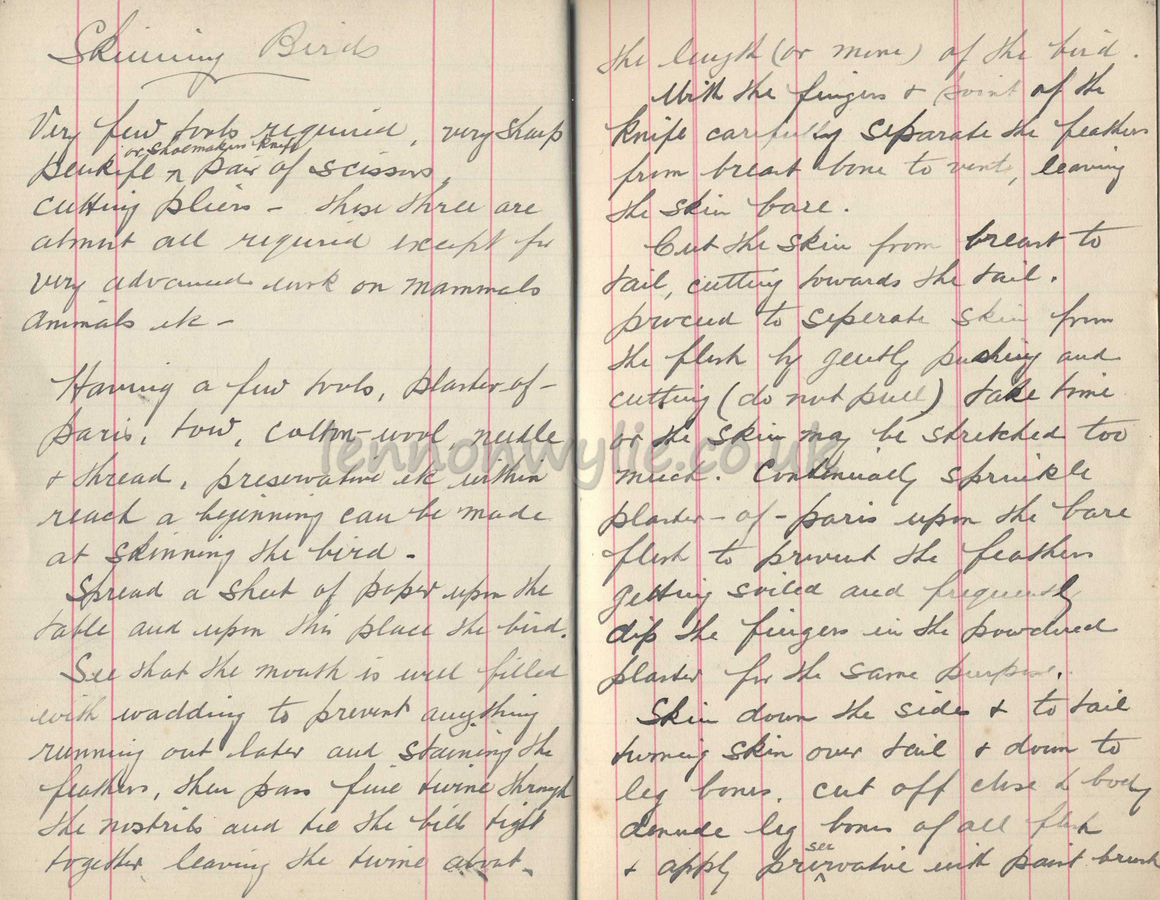 Skinning Birds
Very few tools required, very sharp
or shoemakers knife
penknife pair of scissors,
cutting pliers - these three are
almost all required except for
very advanced work on mammals
animals etc -
Having a few tools, plaster-of-
paris, tow, cotton-wool, needle
& thread, preservative etc within
reach a beginning can be made
at skinning the bird -
Spread a sheet of paper upon the
table and upon this place the bird.
See that the mouth is well filled
with wadding to prevent anything
running out later and staining the
feathers, then pass fine twine through
the nostrils and tie the bill tight
together, leaving the twine about
the length (or more) of the bird.
With the fingers & point of the
knife carefully separate the feathers
from breast bone to vent, leaving
the skin bare.
Cut the skin from breast to
tail, cutting towards the tail.
proceed to seperate skin from
the flesh by gently pushing and
cutting (do not pull) take time
or the skin may be stretched too
much. Continually sprinkle
plaster-of-paris upon the bare
flesh to prevent the feathers
getting soiled and frequently
dip the fingers in the powdered
plaster for the same purpose.
Skin down the sides & to tail
turning skin over tail & down to
leg bones. cut off close to body
denude leg bones of all flesh
see
& apply prervative with paint brush
lennonwylie.co.uk